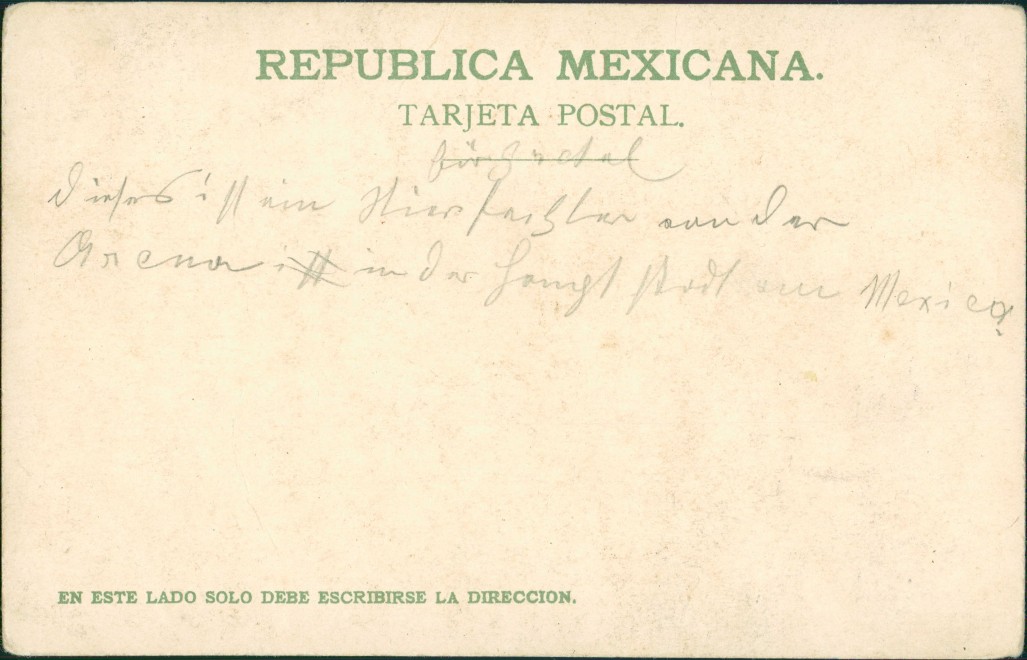 REPUBLICA MEXICANA.
TARJETA POSTAL.
Dieses ist ein Stierfechter von der
Arena ist in der Haupt stadt von Mexico.
EN ESTE LADO SOLO DEBE ESCRIBIRSE LA DIRECCION.